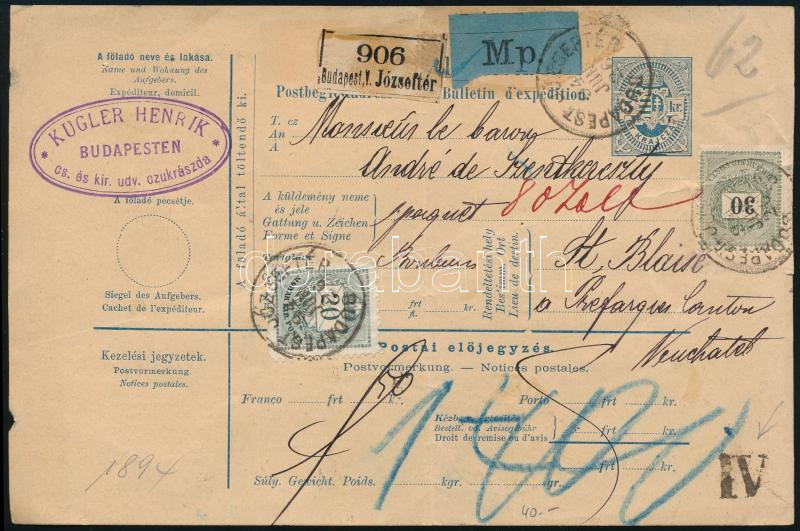 A föladó neve és lakása.
Name und Wohnung des
Aufgebers.
Expéditeur, domicil.
KUGLER HENRIK
BUDAPESTEN
cs. és kir. udv. czukrászda
A föladó pecsétje.
Siegel des Aufgebers.
Cachet de l'expéditeur.
Kezelési jegyzetek.
Postvormerkung.
Notices postales.
1894
A föladó által töltendő ki.
906
Budapest, V. Józseftér
Mp.
62
Bulletin d'expédition.
kr.
T. cz
An
A
Monsieur le baron
André de Szentkereszty
A küldemény neme
és jele
Gattung u. Zeichen
Forme et Signe
paquet
Bonbons
Rendeltetési hely
Besimm. Ort
Lieu de destin.
St. Blaise
a Préfargier Canton
Neuchatel
30
BUDAPEST
20
BUDAPEST
frt kr.
fl.
Postai előjegyzés
Postvormerkung. — Notices postales.
50
Franco frt kr. Porto frt kr.
Kézbesítési értesítés
Bestell. od. Avisogebühr
Droit de remise ou d'avis
frt kr.
Súly. Gewicht. Poids. kgr. gr. frt kr.
IV
40.-
darabanth.com